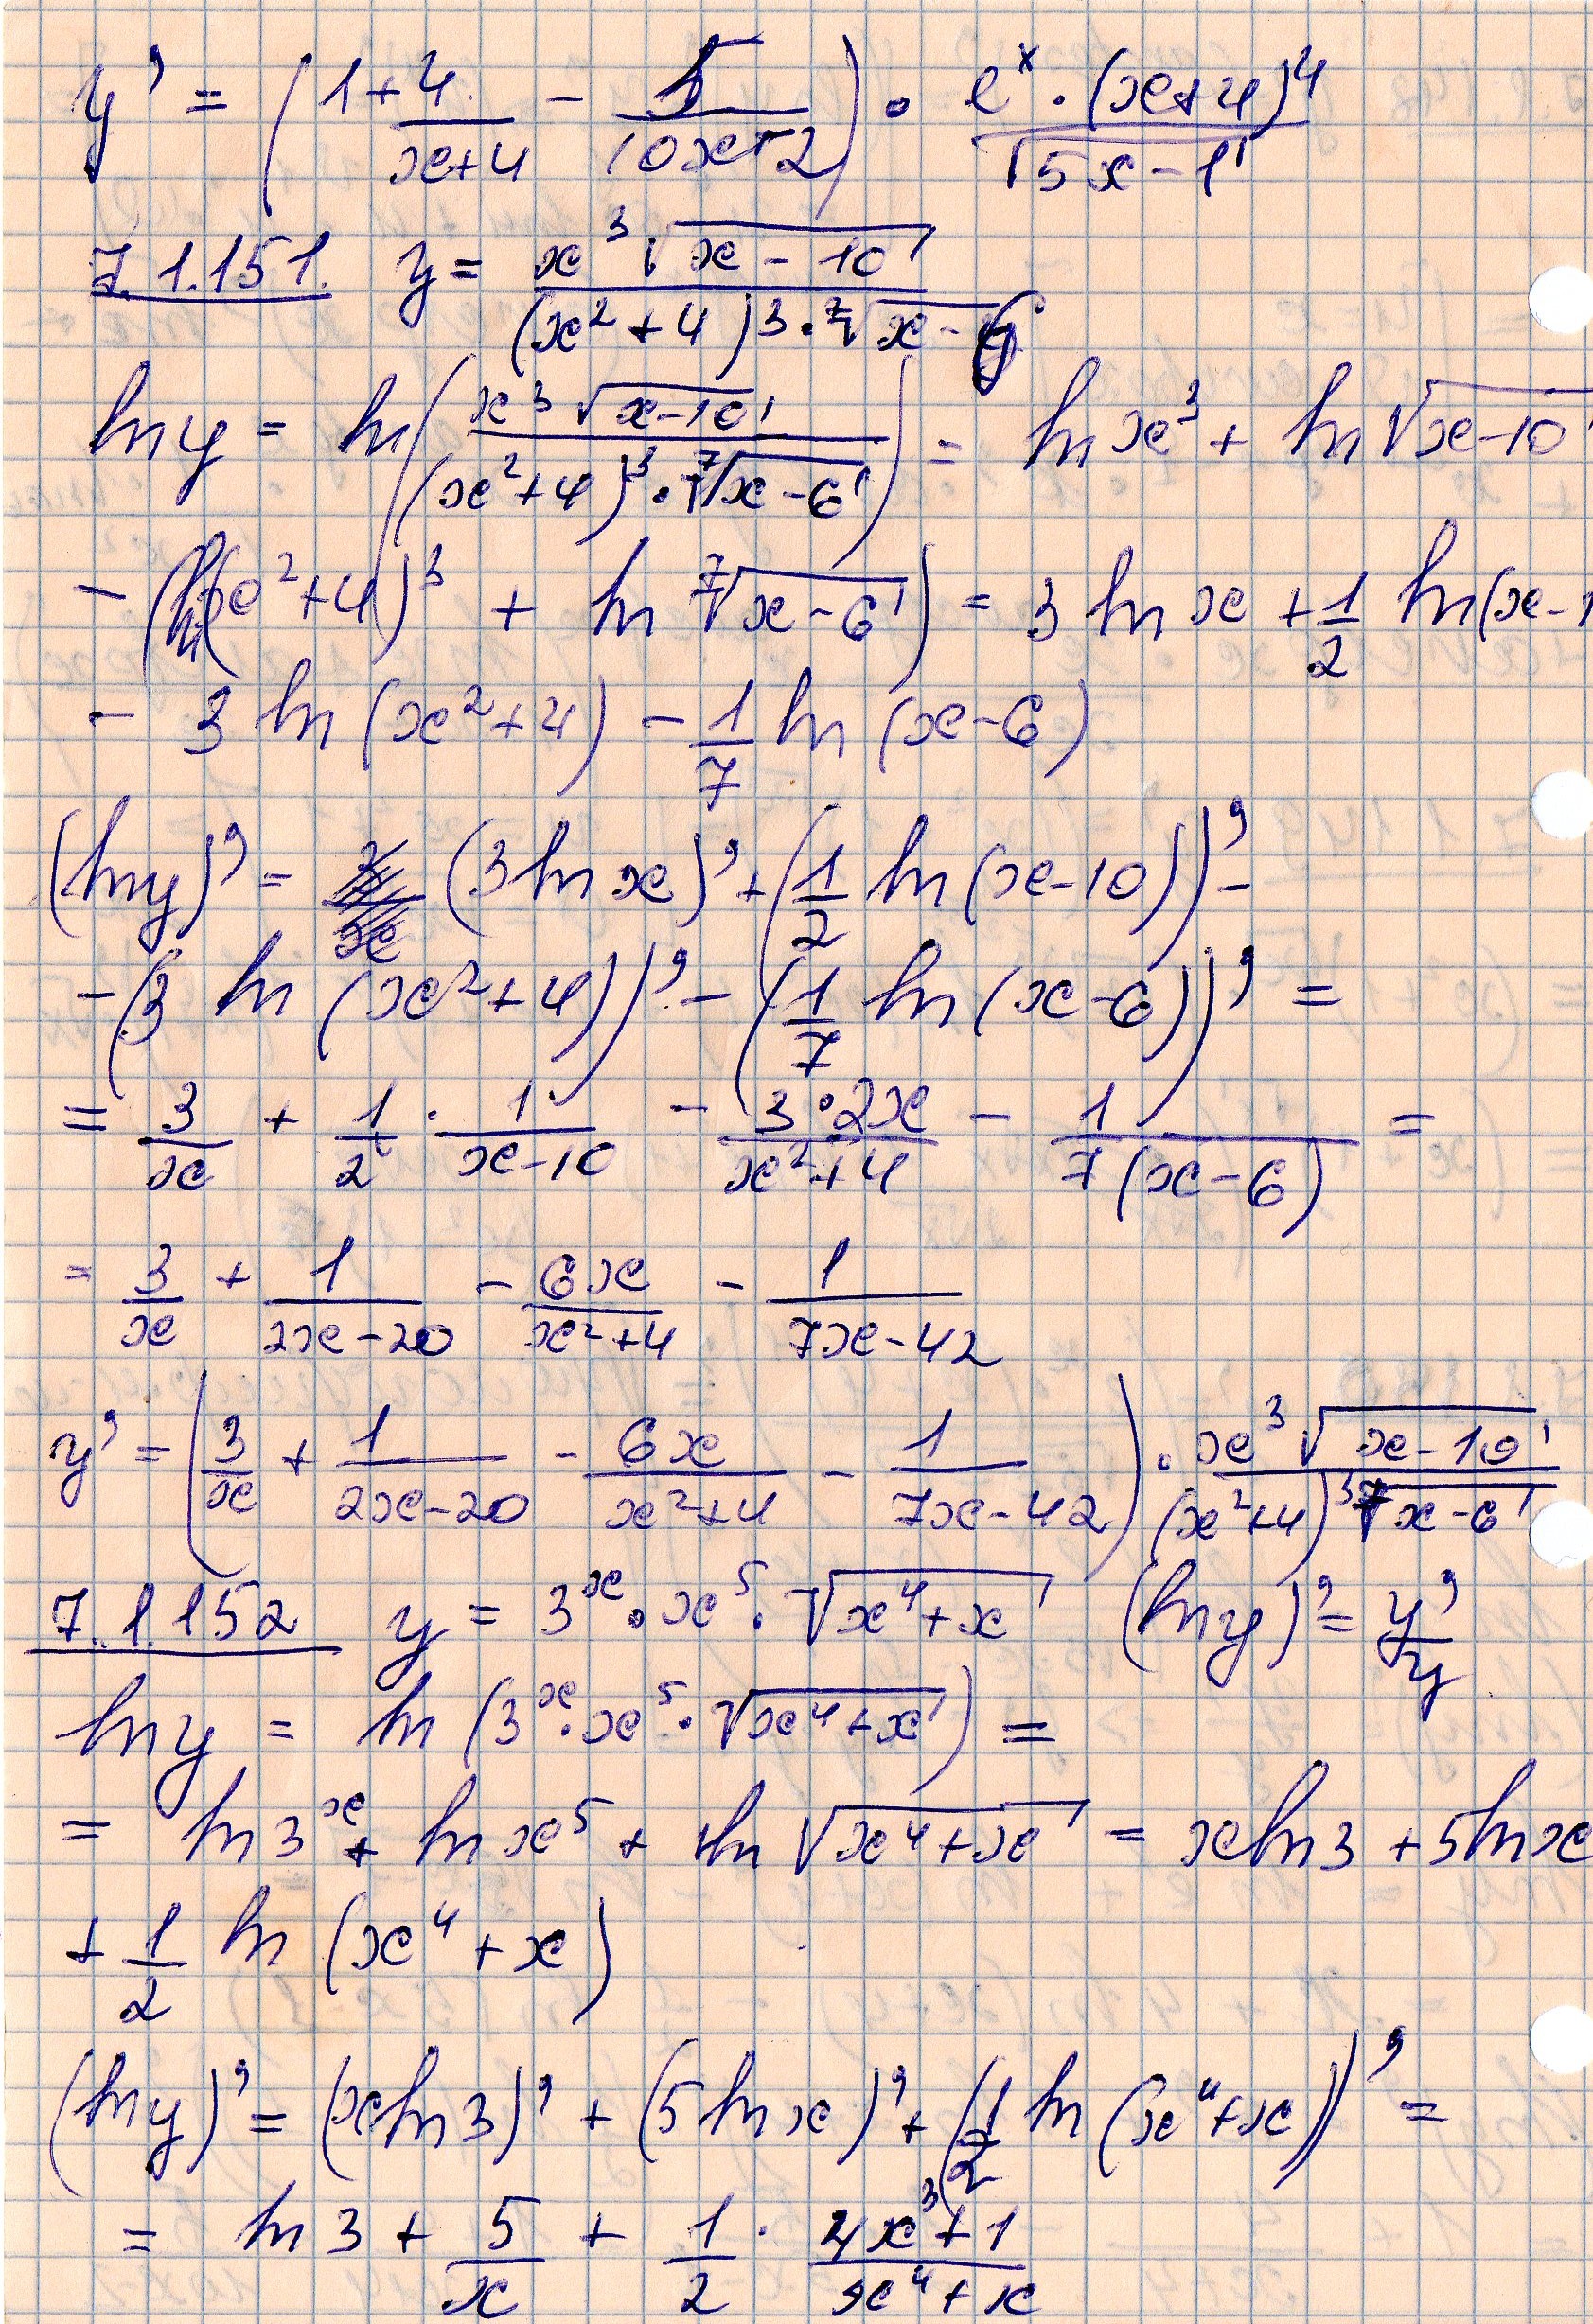 y' = (1 + 4/(x+4) - 5/(10x-2)) · e^x · (x+4)^4 / √(5x-1)
7.1.151. y = x^3 √(x-10) / ((x^2+4)^3 · ⁷√(x-6))
ln y = ln(x^3 √(x-10) / ((x^2+4)^3 · ⁷√(x-6))) = ln x^3 + ln √(x-10)
- (ln(x^2+4)^3 + ln ⁷√(x-6)) = 3 ln x + 1/2 ln(x-1
- 3 ln (x^2+4) - 1/7 ln (x-6)
(ln y)' = (3 ln x)' + (1/2 ln (x-10))' -
- (3 ln (x^2+4))' - (1/7 ln (x-6))' =
= 3/x + 1/2 · 1/(x-10) - 3·2x/(x^2+4) - 1/(7(x-6)) =
= 3/x + 1/(2x-20) - 6x/(x^2+4) - 1/(7x-42)
y' = (3/x + 1/(2x-20) - 6x/(x^2+4) - 1/(7x-42)) · x^3 √(x-10) / ((x^2+4)^3 ⁷√(x-6))
7.1.152 y = 3^x · x^5 · √(x^4+x) (ln y)' = y'/y
ln y = ln (3^x · x^5 · √(x^4+x)) =
= ln 3^x + ln x^5 + ln √(x^4+x) = x ln 3 + 5 ln x
+ 1/2 ln (x^4 + x)
(ln y)' = (x ln 3)' + (5 ln x)' + (1/2 ln (x^4+x))' =
= ln 3 + 5/x + 1/2 · (4x^3+1)/(x^4+x)